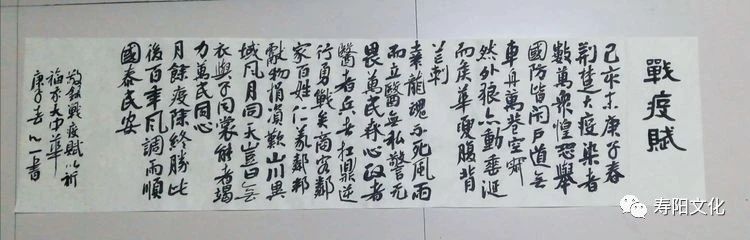 戰疫賦
己亥末庚子春
荆楚大疫染者
數萬衆惶恐舉
國防皆閉戶道無
車舟萬巷空寂
然外狼亦動垂涎
而候華夏腹背
芒刺
幸龍魂不死風雨
而立醫無私警無
畏萬民齊心政者
醫者兵者扛鼎逆
行勇戰矣商客鄰
家百姓仁義鄰邦
獻物捐資歎山川異
域風月同天豈曰無
衣與子同裳能者竭
力萬民同心
月餘疫除終勝此
後百年風調雨順
國泰民安
敬錄戰疫賦以祈
福大中華
庚子春 書
寿阳文化